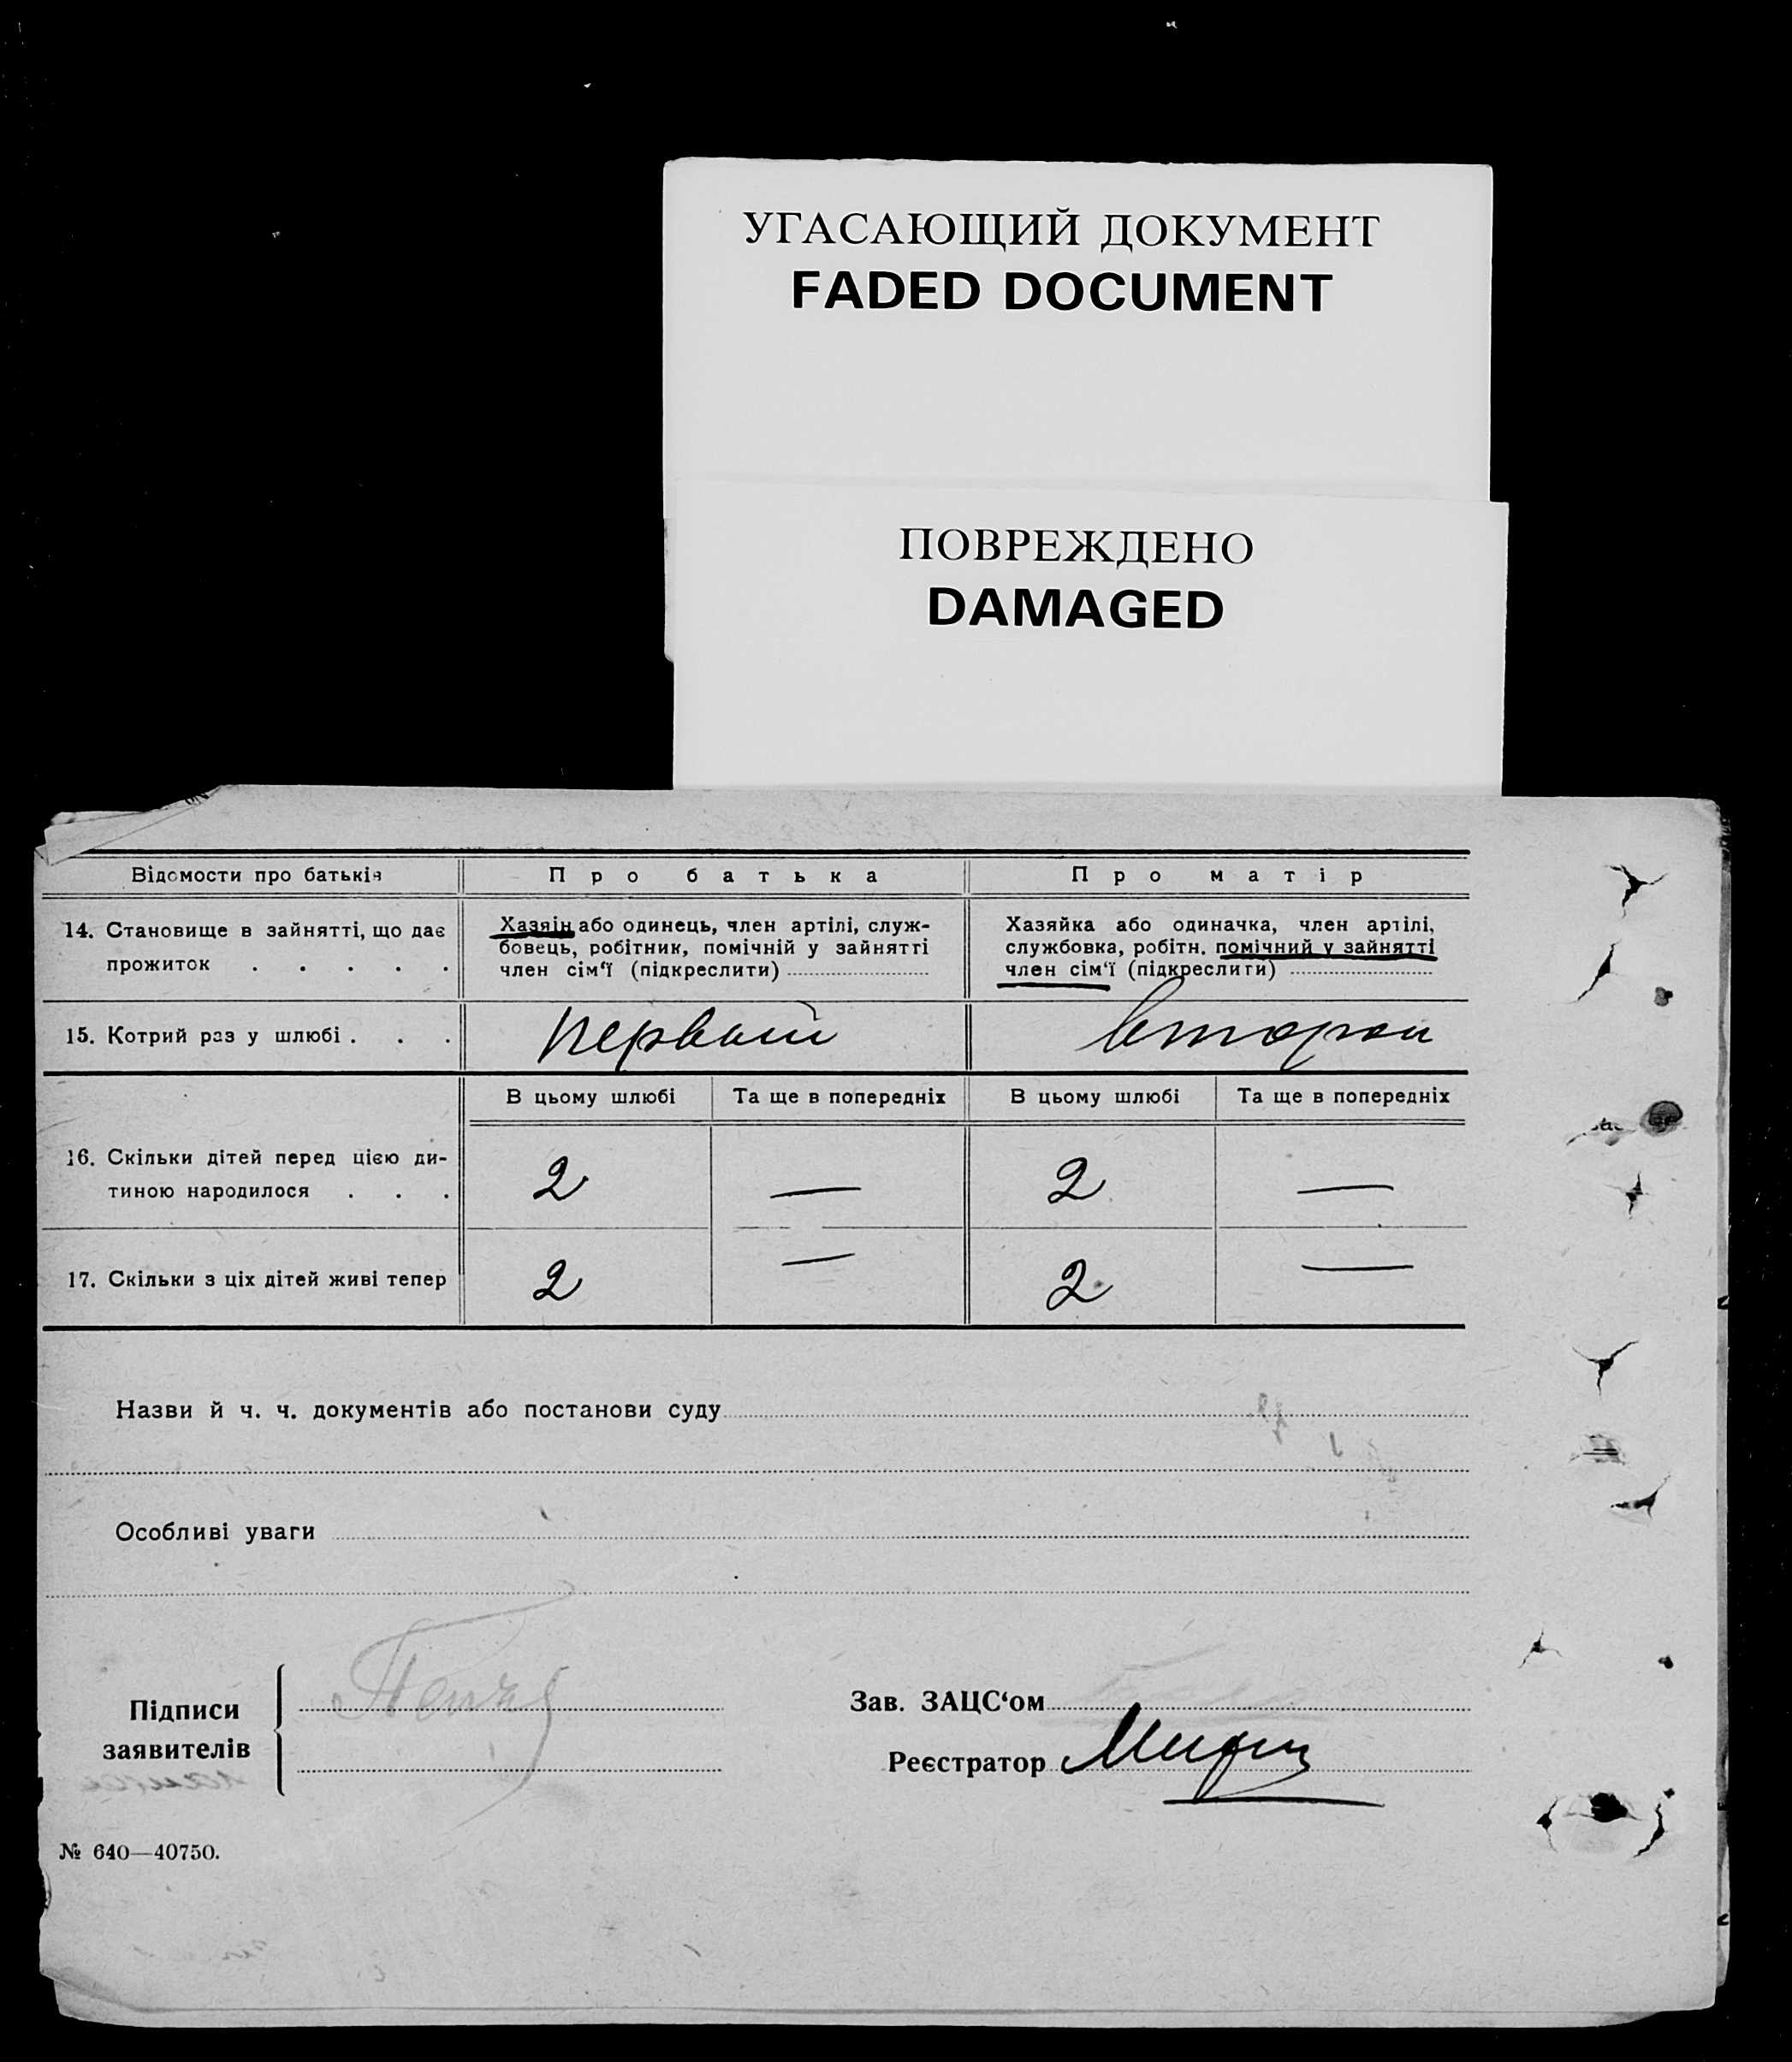 УГАСАЮЩИЙ ДОКУМЕНТ
FADED DOCUMENT
ПОВРЕЖДЕНО
DAMAGED
Відомости про батьків
Про батька
Про матір
14. Становище в зайнятті, що дає
прожиток . . . . .
Хазяін або одинець, член артілі, служ-
бовець, робітник, помічній у зайнятті
член сім‘ї (підкреслити)
Хазяйка або одиначка, член артілі,
службовка, робітн. помічний у зайнятті
член сім‘ї (підкреслити)
15. Котрий раз у шлюбі . . .
первый
второй
В цьому шлюбі
Та ще в попередніх
В цьому шлюбі
Та ще в попередніх
16. Скільки дітей перед цією ди-
тиною народилося . . .
2
—
2
—
17. Скільки з ціх дітей живі тепер
2
—
2
—
Назви й ч. ч. документів або постанови суду
Особливі уваги
Підписи
заявителів
Зав. ЗАЦС‘ом
Реєстратор
№ 640—40750.